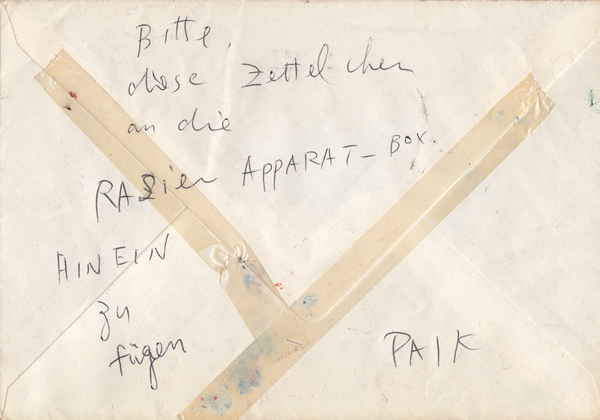 Bitte,
diese Zettelchen
an die
RASier APPARAT-BOX.
HINEIN
zu
fügen
PAIK